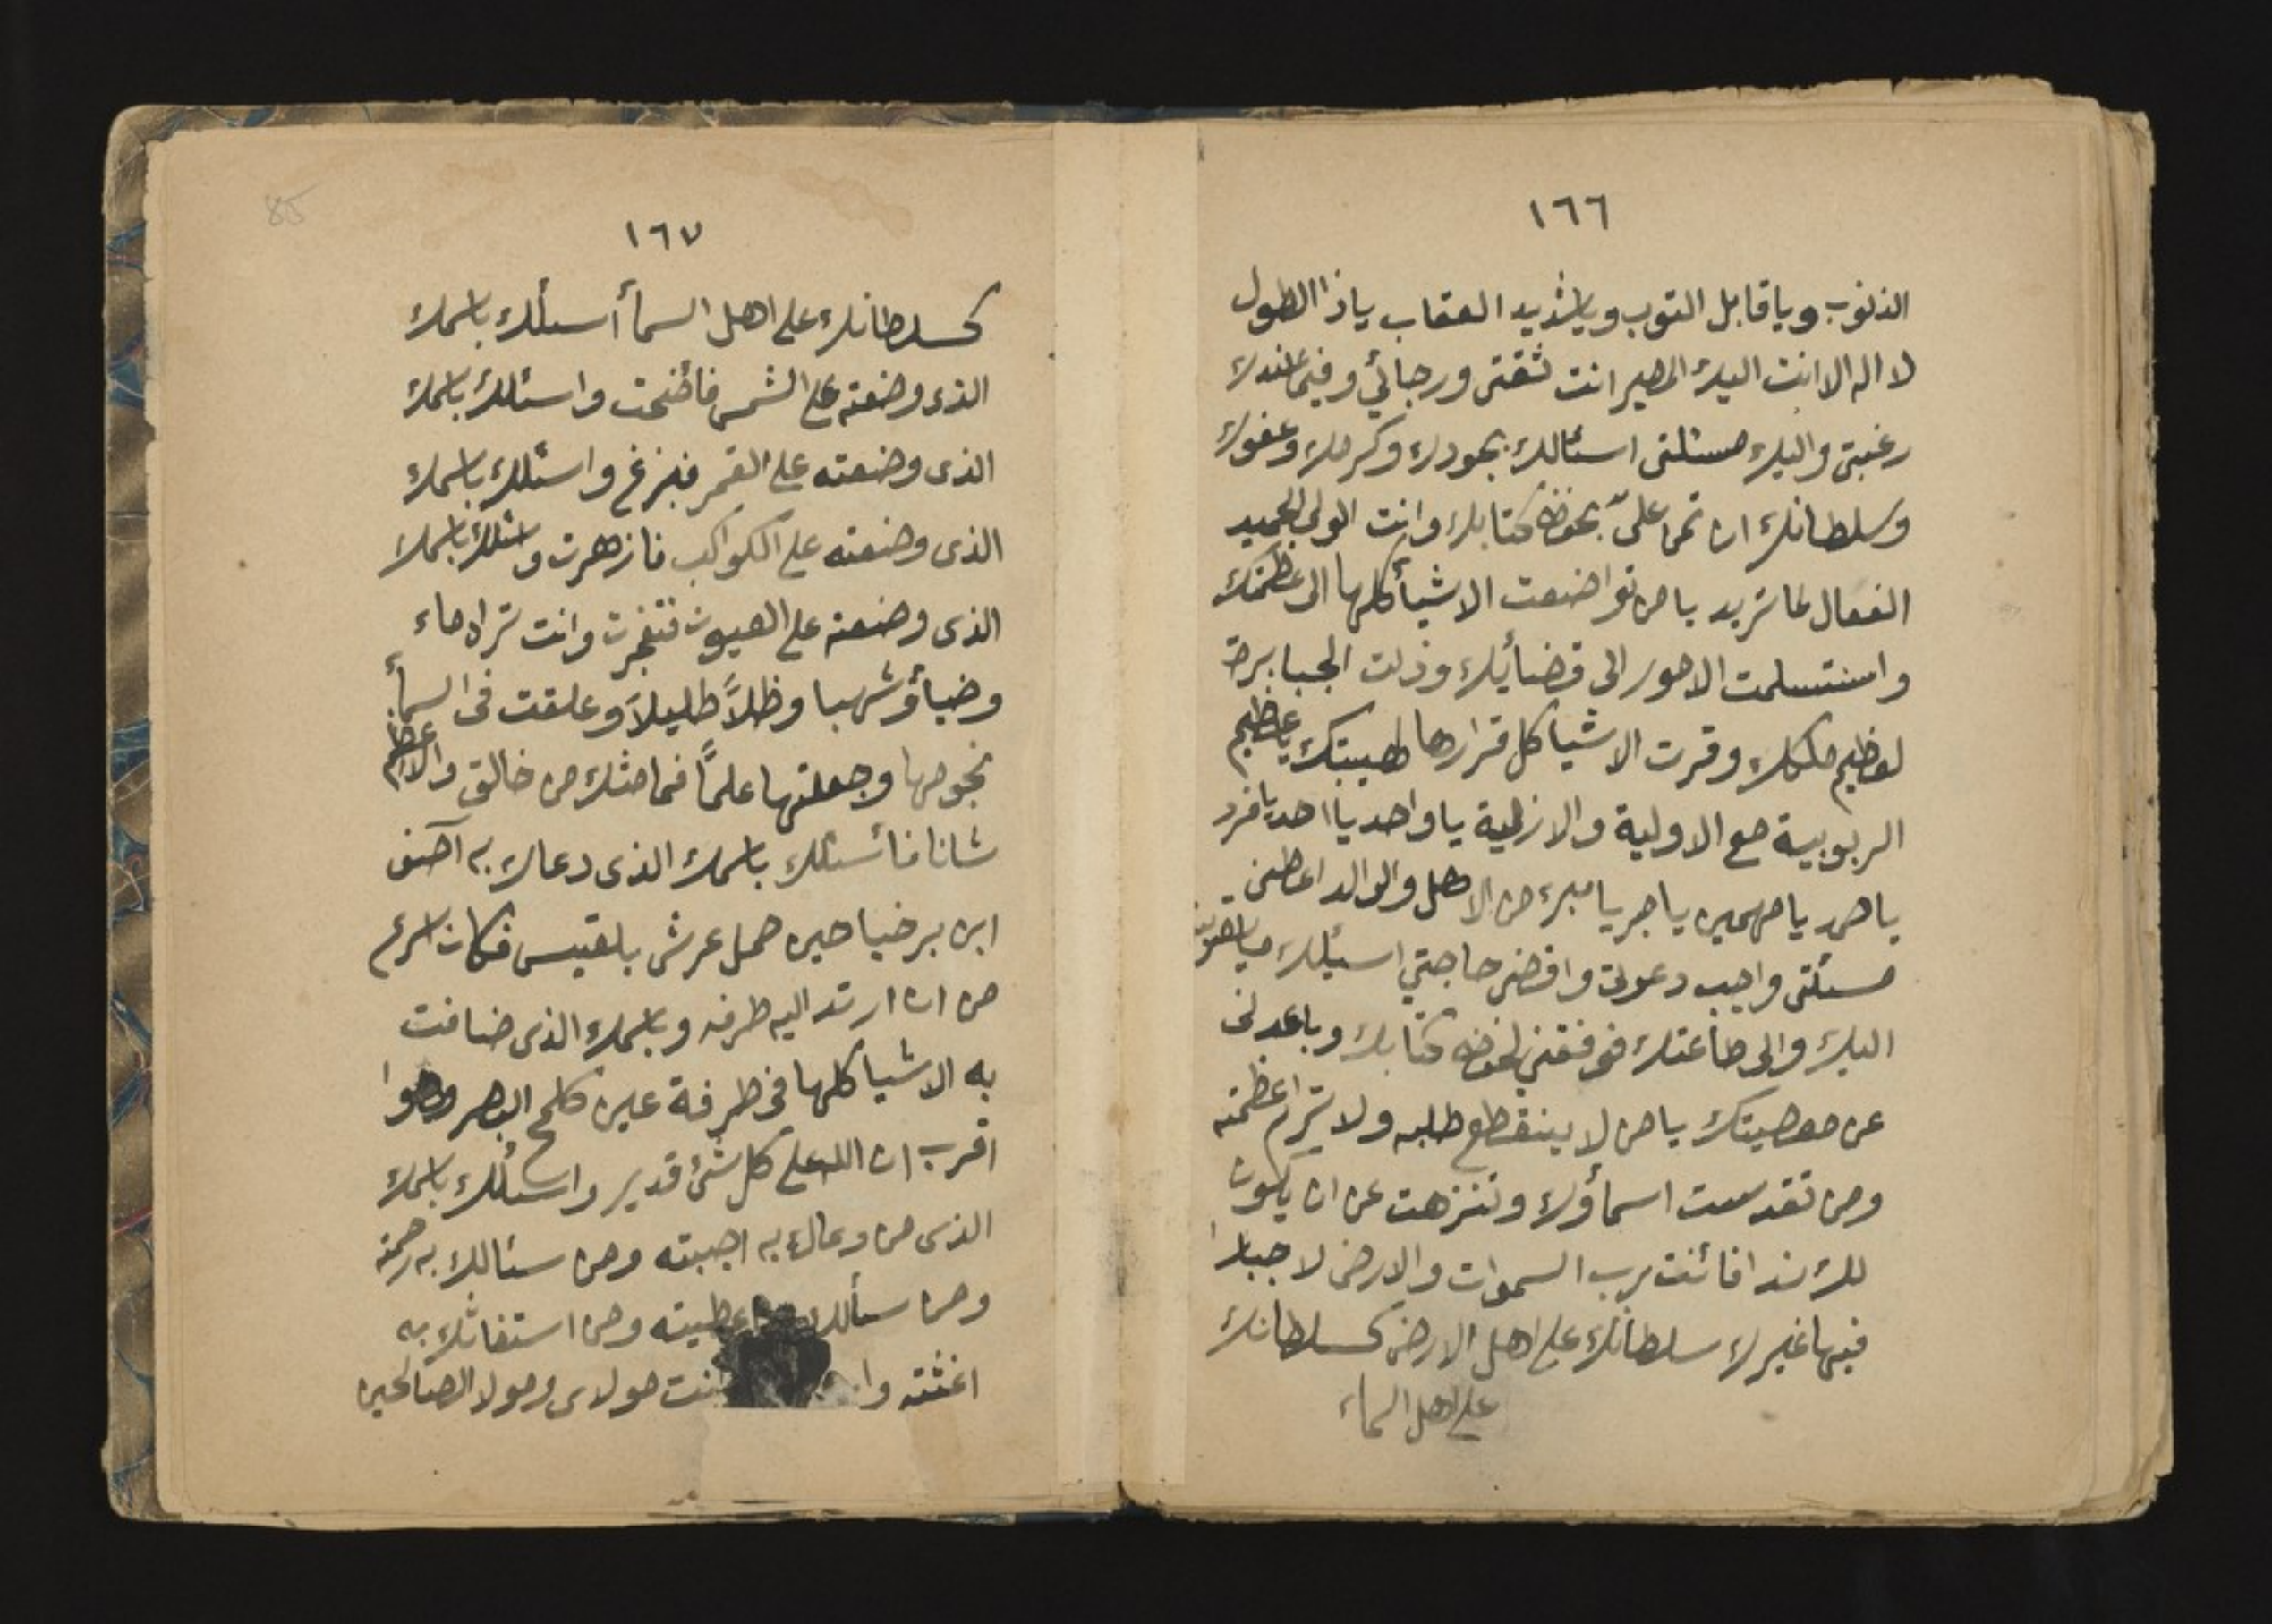 ١٦٦
الذنوب ويا قابل التوب ويا شديد العقاب ياذا الطول
لا اله الا انت اليك المصير انت ثقتى ورجائي وفيما عندك
رغبتى واليك مسئلتى اسئالك بجودك وكرمك وعفوك
وسلطانك ان تمن علىّ بحفظ كتابك وانت الولى الحميد
الفعال لما تريد يا من تواضعت الاشيأ كلها الى عظمتك
وامنتسلمت الامور الى قضائك وذلت الجبابرة
لعظيم ملكك وقرت الاشيا كل قرارها لهيبتك يا عظيم
الربوبية مع الاولية والازلية يا واحد يا احد يا فرد
يا صمد يا مهيمن يا مبرء من الاهل والوالد اعطنى
مسئلتى واجب دعوتى واقضى حاجتي اسئلك
اليك والى طاعتك فوفقني لحفظ كتابك وباعدنى
عن معصيتك يا من لا ينقطع طلبه ولا ترام عظمته
ومن تقدست اسمأؤك وتنزهت عن ان يكون
لك ندا فائنت رب السموات والارض لا جبارا
فيها غيرك سلطانك على اهل الارض كسلطانك
على اهل السماء
١٦٧
كسلطانك على اهل السمأ أسئلك باسمك
الذى وضعته على الشمس فأضحت واسئلك باسمك
الذى وضعته على القمر فبزغ واسئلك باسمك
الذى وضعته على الكواكب فازهرت واسئلك باسمك
الذى وضعته على العيون فتفجرت وانت تراه ماء
وضيأ وشهبا وظلاً ظليلاً وعلقت فى السمأ
نجومها وجعلتها علماً فما مثلك من خالق والاعظم
شانا فأسئلك باسمك الذى دعاك به آصف
ابن برخيا حين حمل عرش بلقيس فكان اسرع
من ان ارتد اليه طرفه وباسمك الذى ضافت
به الاشيا كلها فى طرفة عين كلمح البصر وهوا
اقرب ان الله على كل شئ قدير واسئلك باسمك
الذى من دعاك به اجبته ومن سئالك به رحمته
ومن سألك اعطيته ومن استغاثك به
اغثته وا انت مولاى ومولا الصالحين